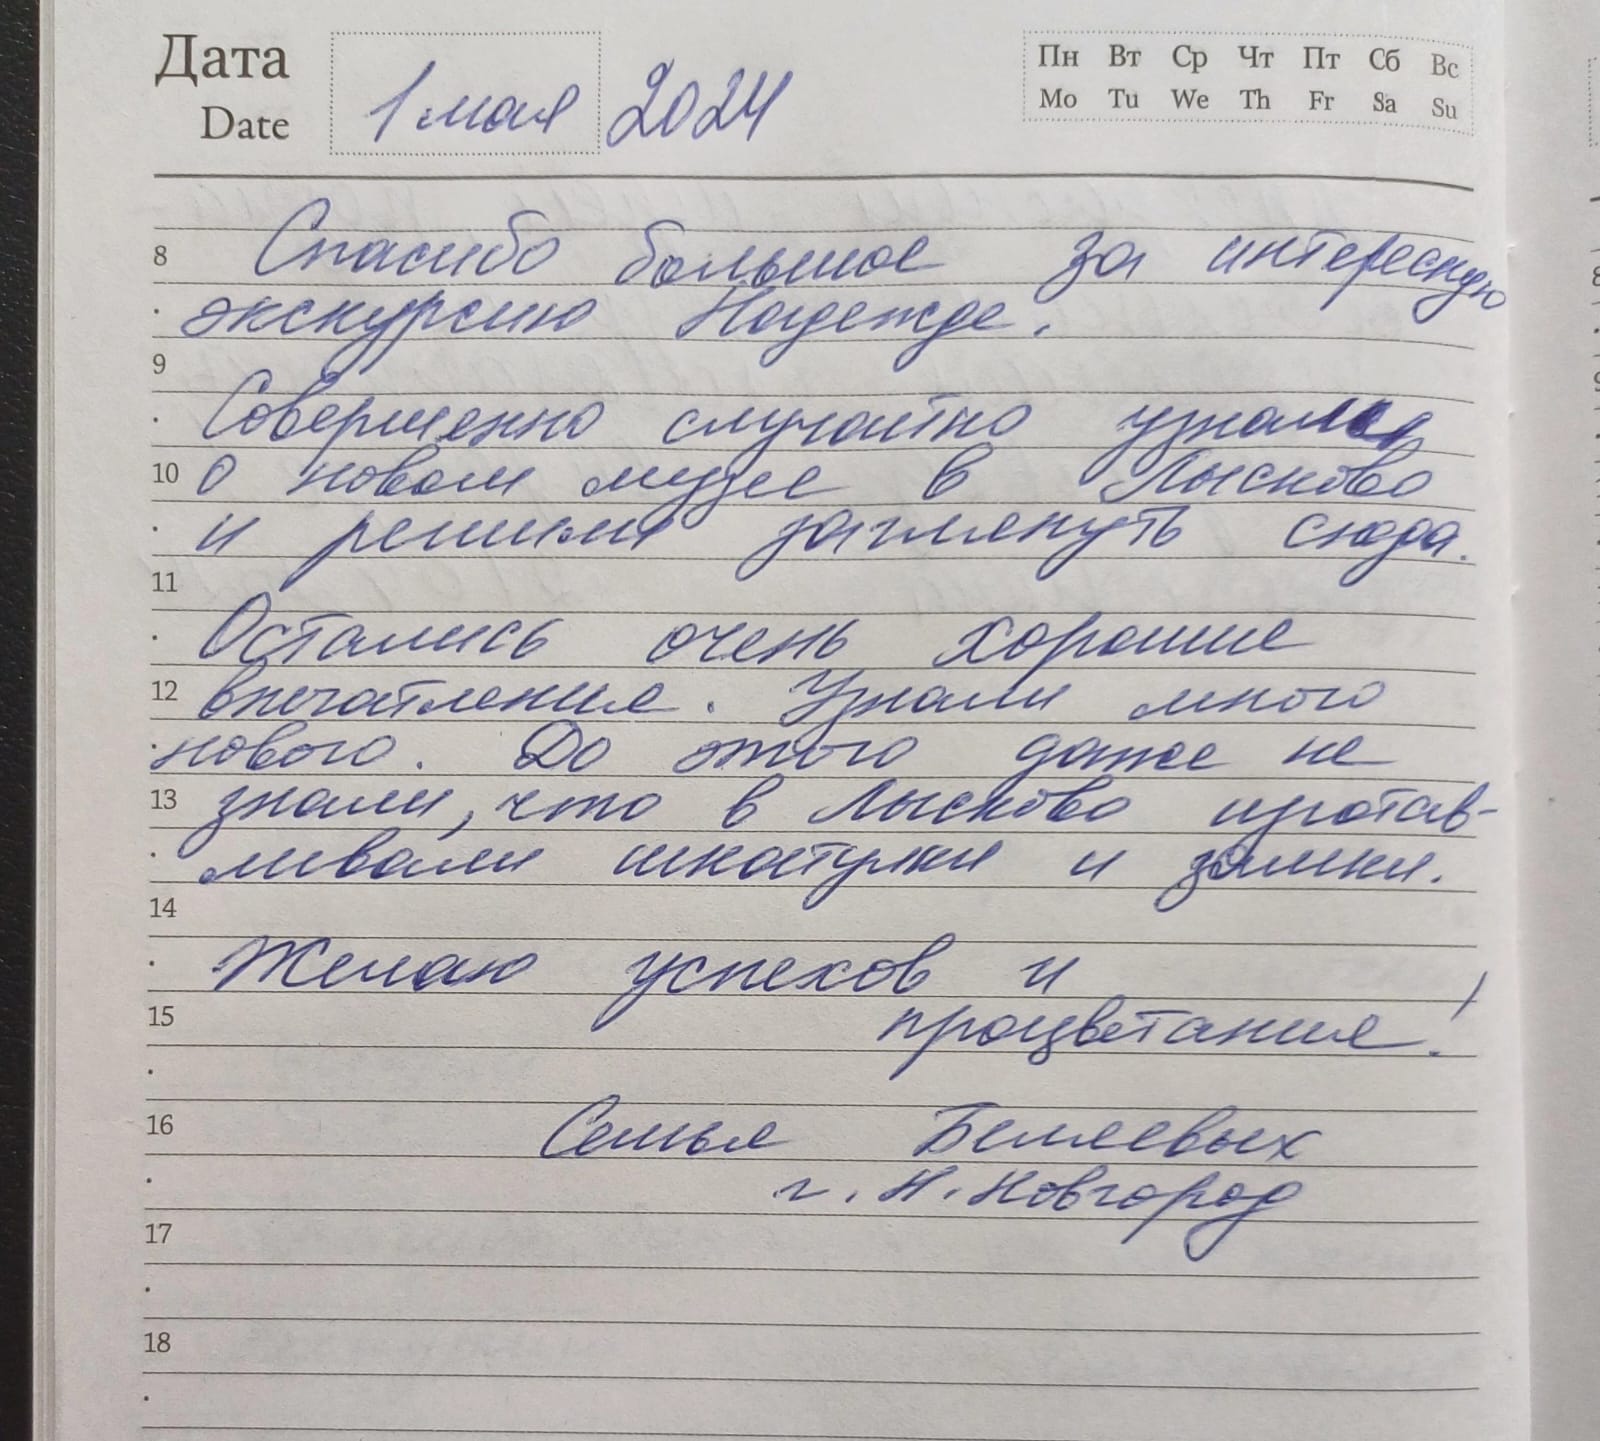 Дата
Date
1 мая 2024
Пн Вт Ср Чт Пт Сб Вс
Mo Tu We Th Fr Sa Su
8 Спасибо большое за интересную
экскурсию Надежде.
9
Совершенно случайно узнали
10 о новом музее в Лысково
и решили заглянуть сюда.
11
Остались очень хорошие
12 впечатления. Узнали много
нового. До этого даже не
13 знали, что в Лысково изготав-
ливали шкатулки и замки.
14
Желаю успехов и
15 процветания!
16 Семья Беляевых
г. Н. Новгород
17
18